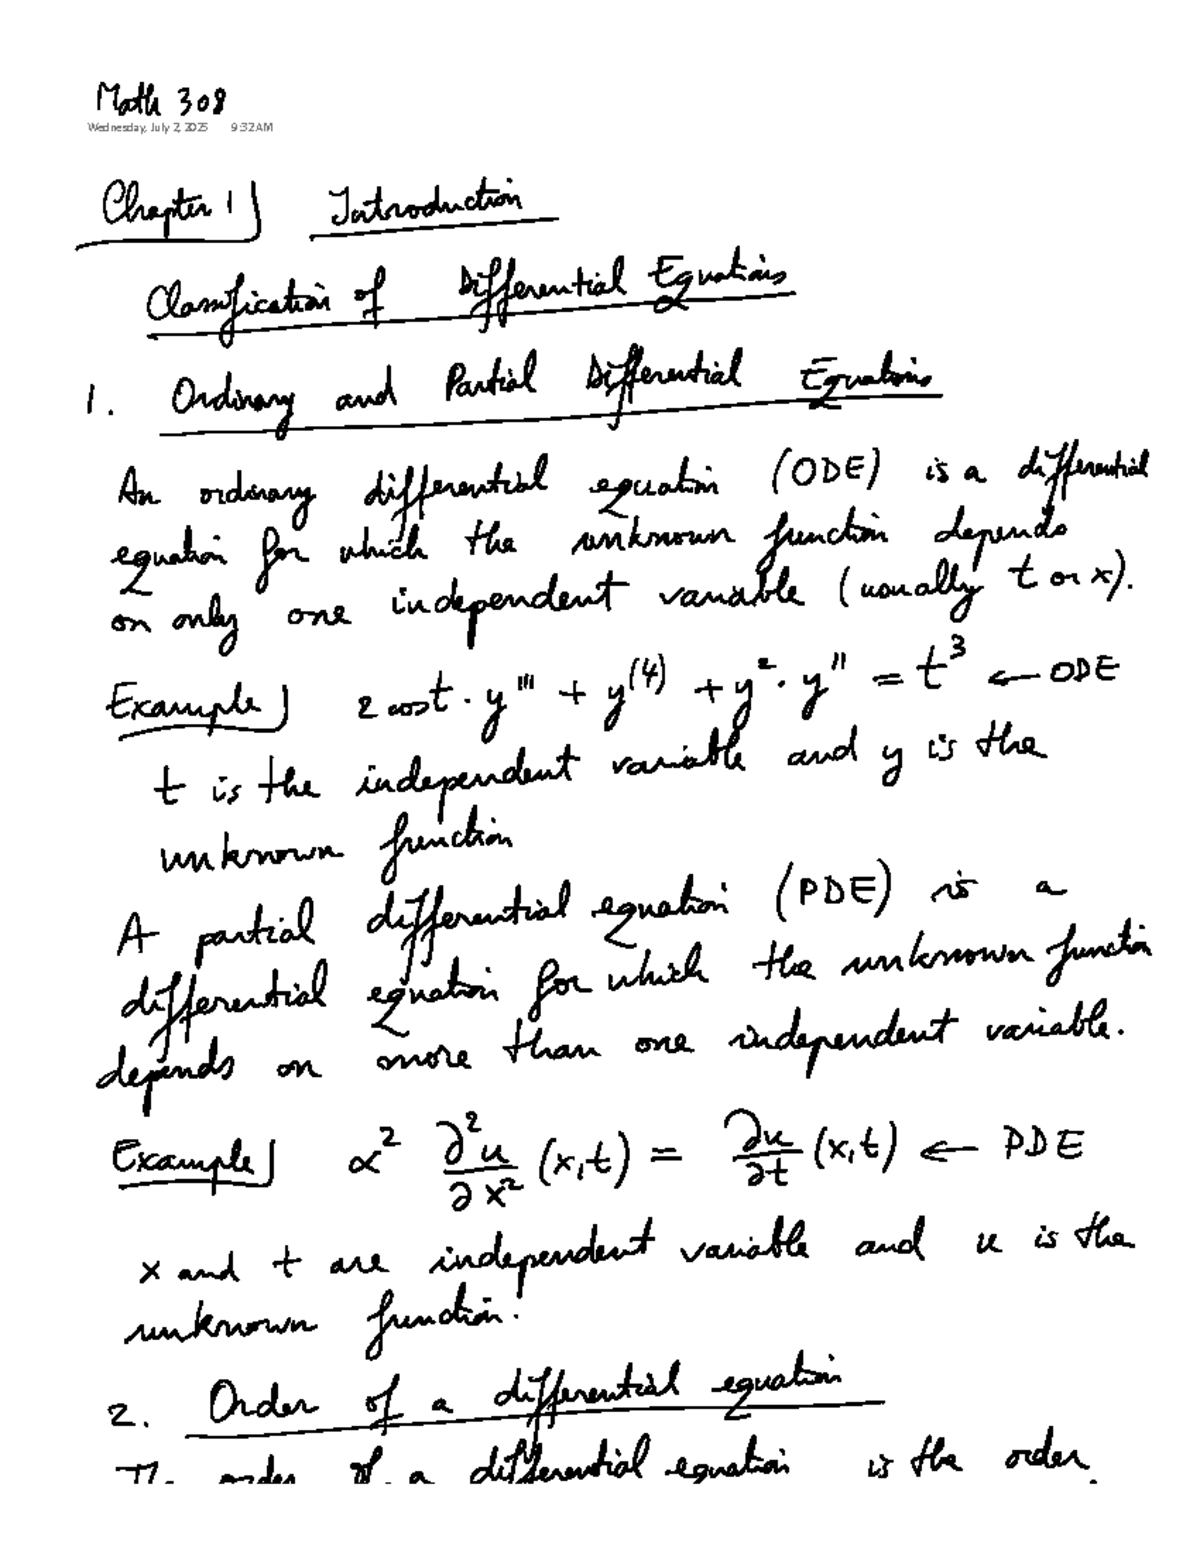 Math 308
Wednesday, July 2, 2025 9:32 AM
Chapter 1 Introduction
Classification of Differential Equations
1. Ordinary and Partial Differential Equations
An ordinary differential equation (ODE) is a differential
equation for which the unknown function depends
on only one independent variable (usually t or x).
Example 2 cos t · y''' + y⁽⁴⁾ + y² · y'' = t³ ← ODE
t is the independent variable and y is the
unknown function
A partial differential equation (PDE) is a
differential equation for which the unknown function
depends on more than one independent variable.
Example α² ∂²u/∂x² (x,t) = ∂u/∂t (x,t) ← PDE
x and t are independent variable and u is the
unknown function.
2. Order of a differential equation
The order of a differential equation is the order